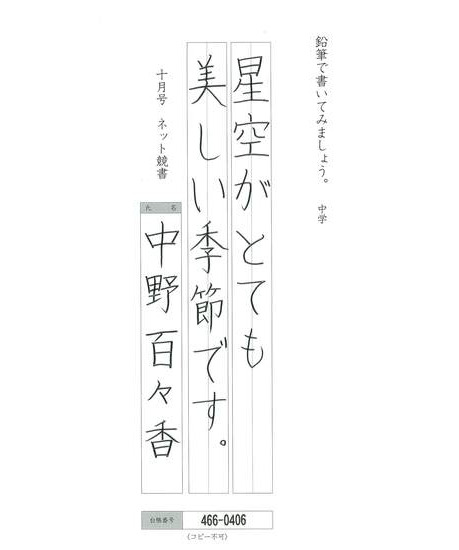 鉛筆で書いてみましょう。 中学
星空がとても
美しい季節です。
十月号 ネット競書
氏 名
中野百々香
台帳番号 466-0406
（コピー不可）